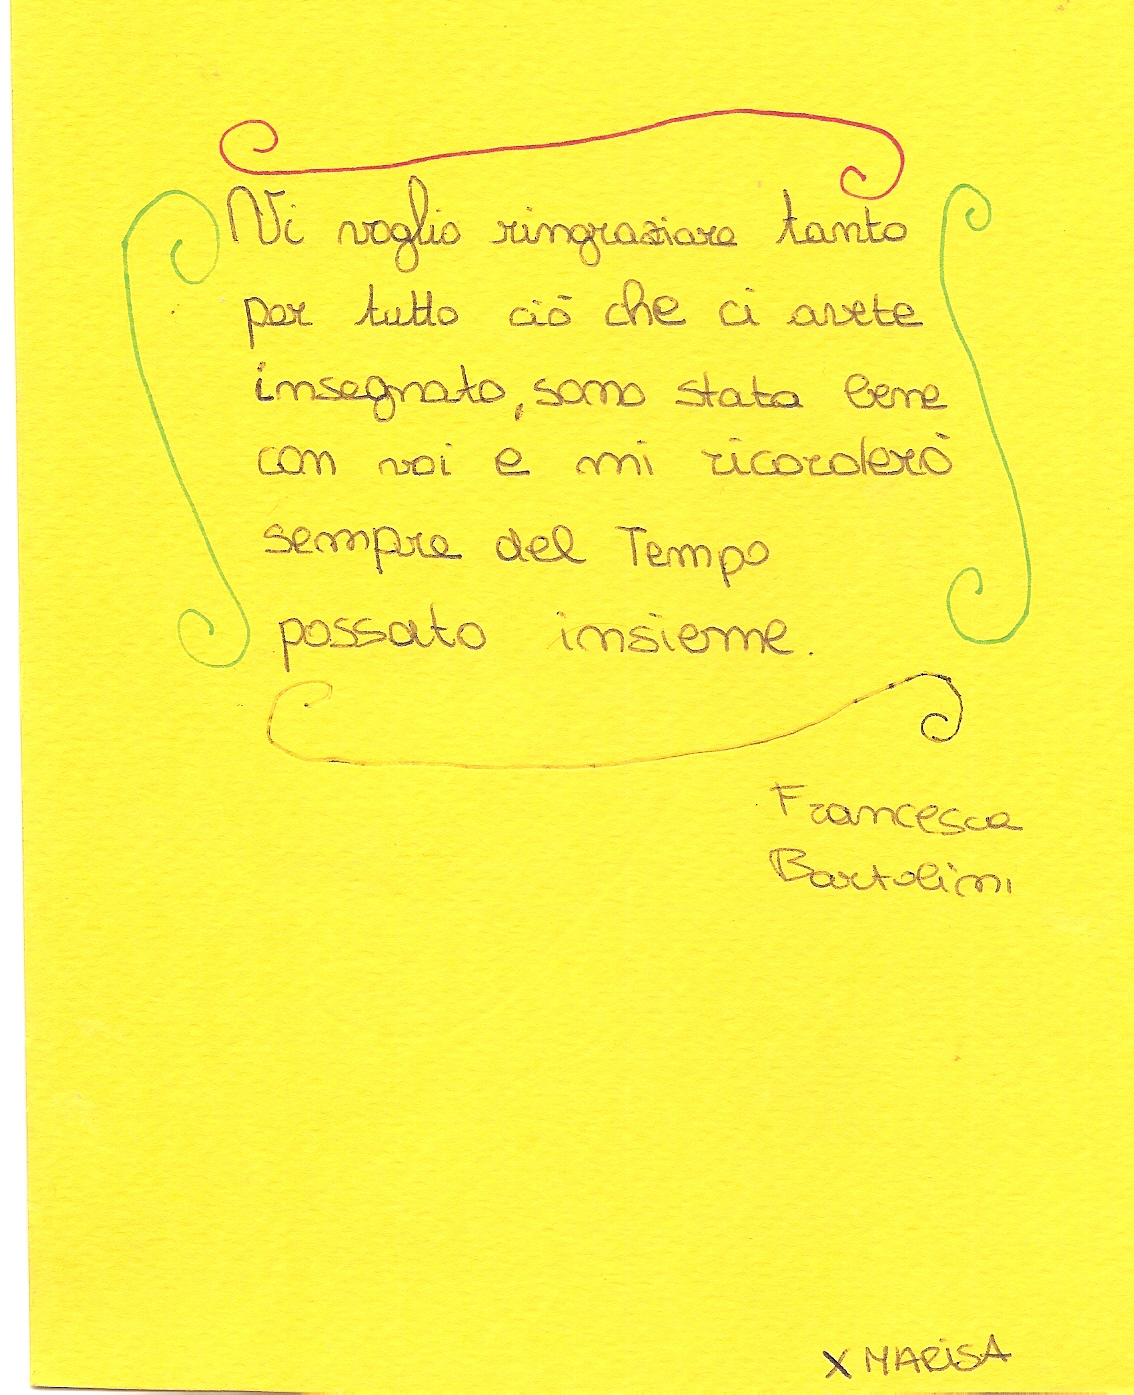 Vi voglio ringraziare tanto
per tutto ciò che ci avete
insegnato, sono stata bene
con voi e mi ricorderò
sempre del Tempo
passato insieme.
Francesca
Bartolini
X MARISA